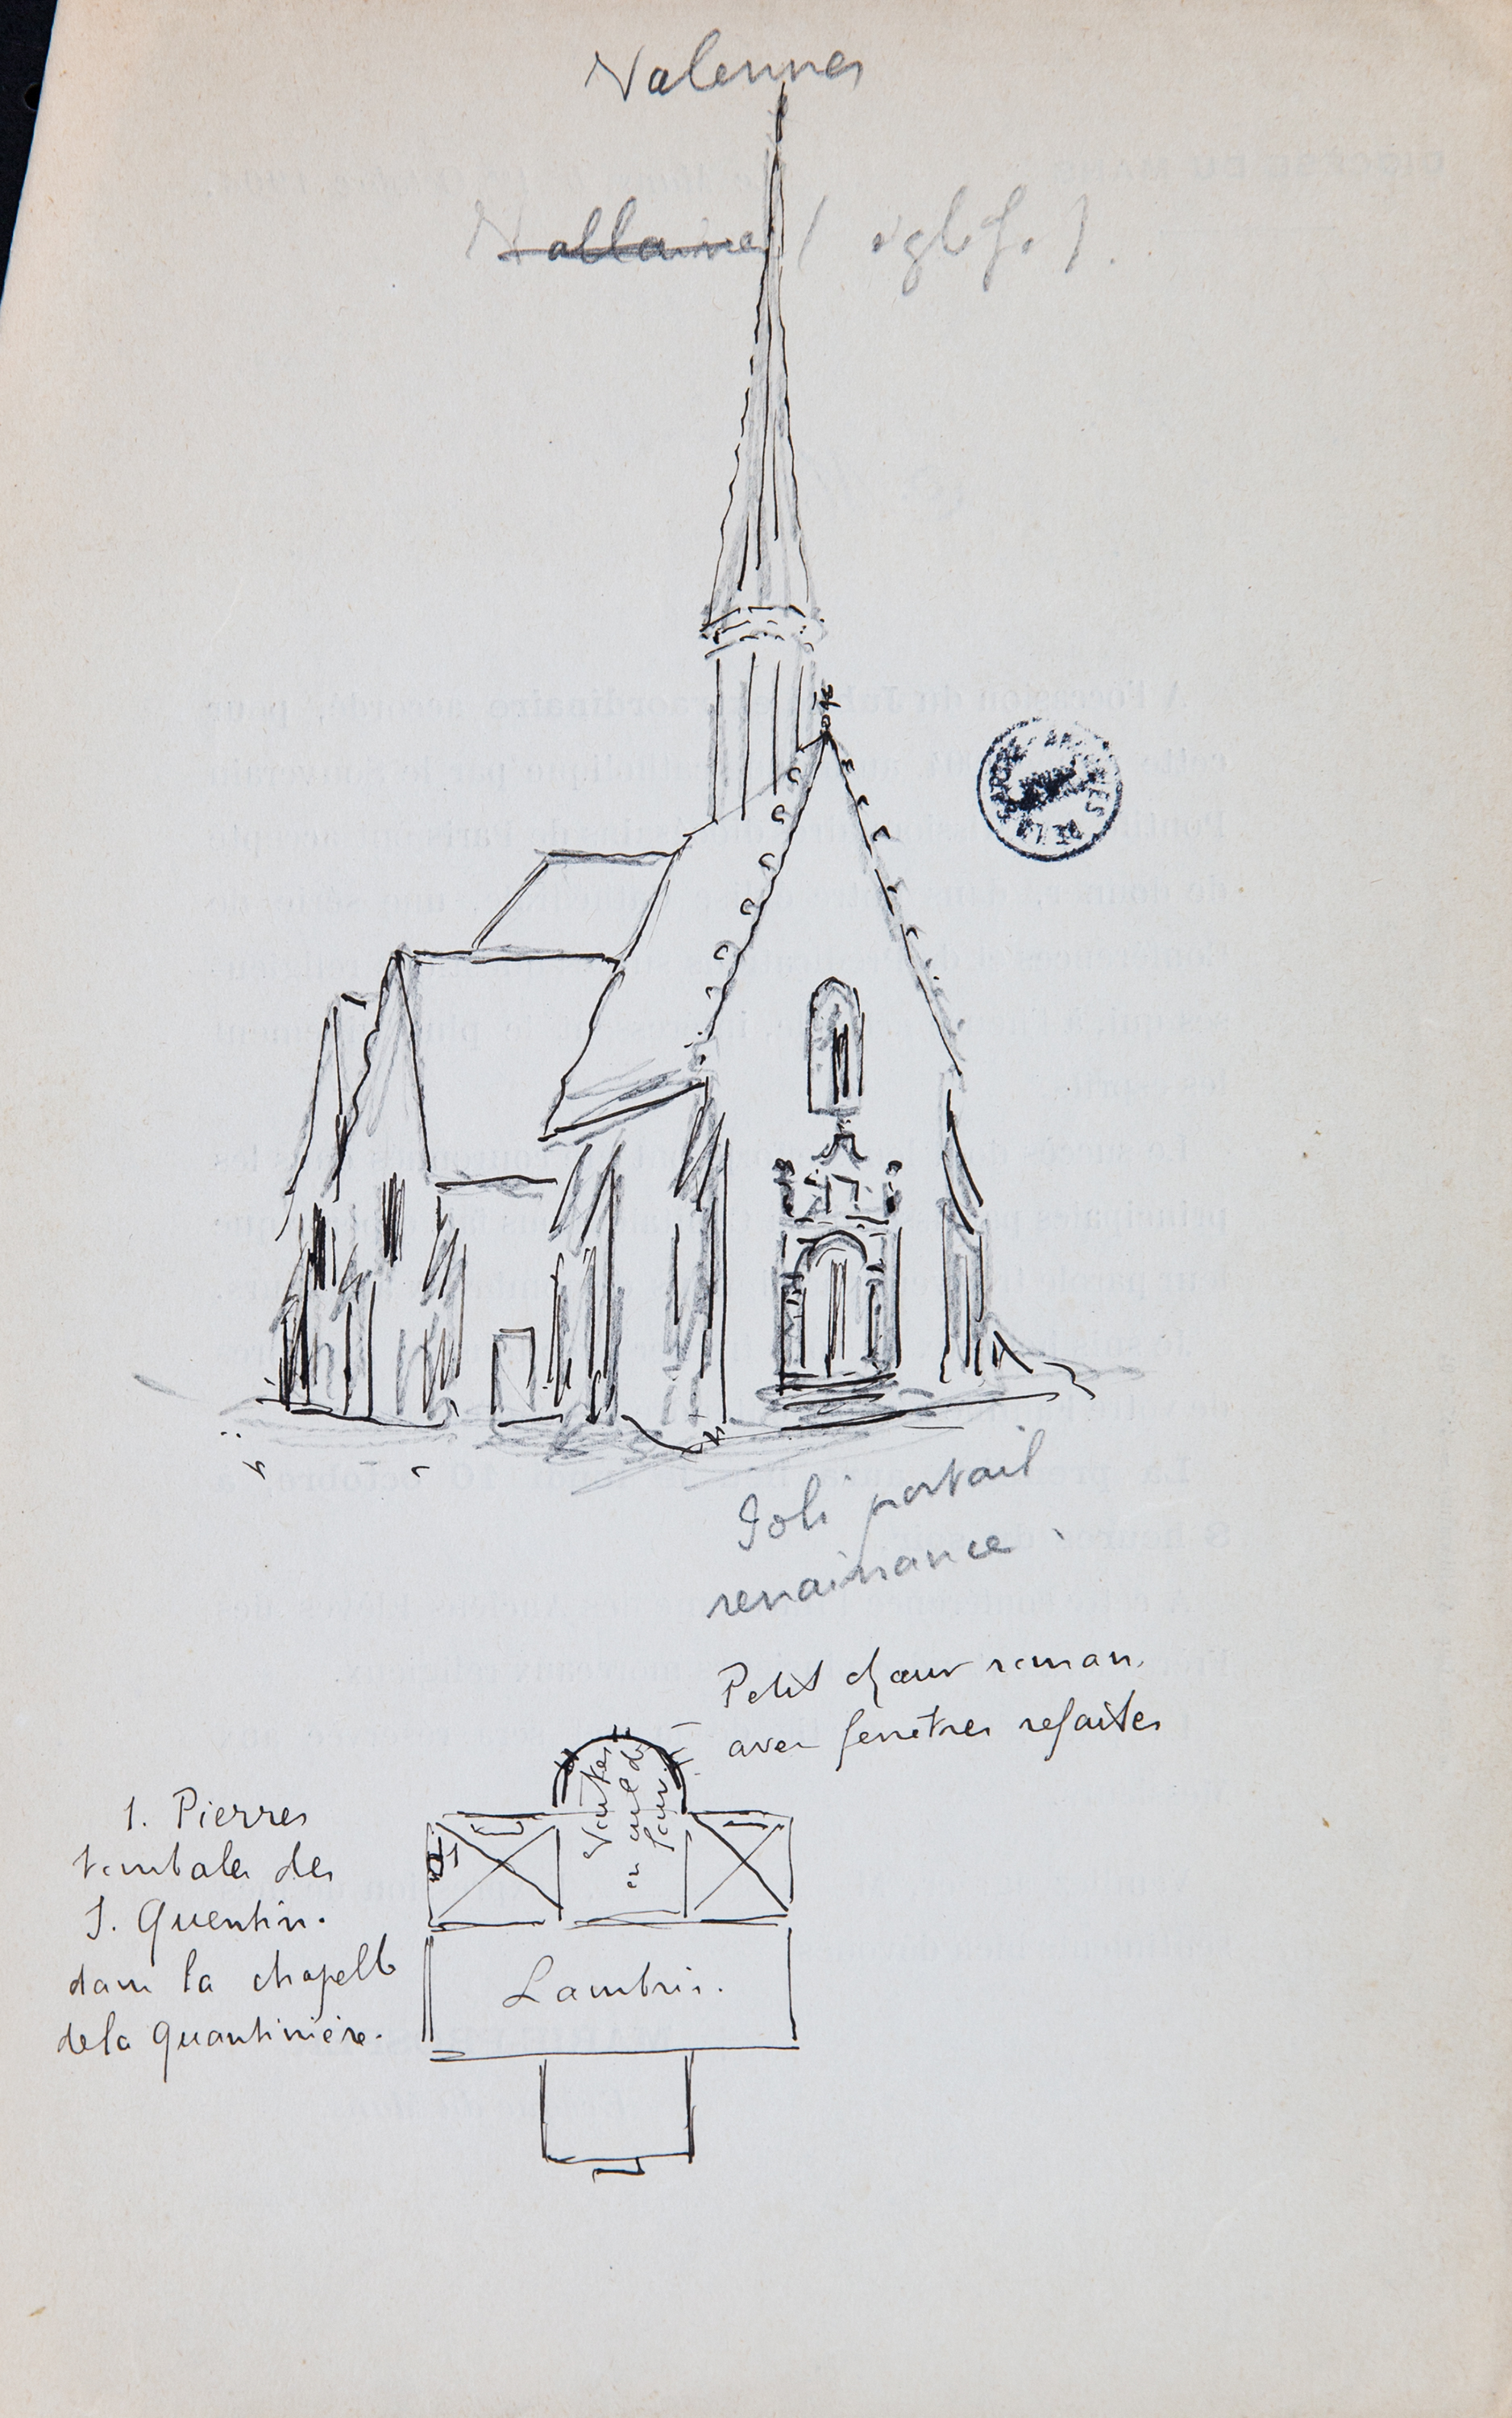 Valennes
Vallaines (église).
Joli portail
renaissance.
Petit chœur roman.
avec fenêtres refaites
Voutes
en cul de
four.
1. Pierres
tombales des
S. Quentin.
dans la chapelle
de la Quantinière.
Lambris.